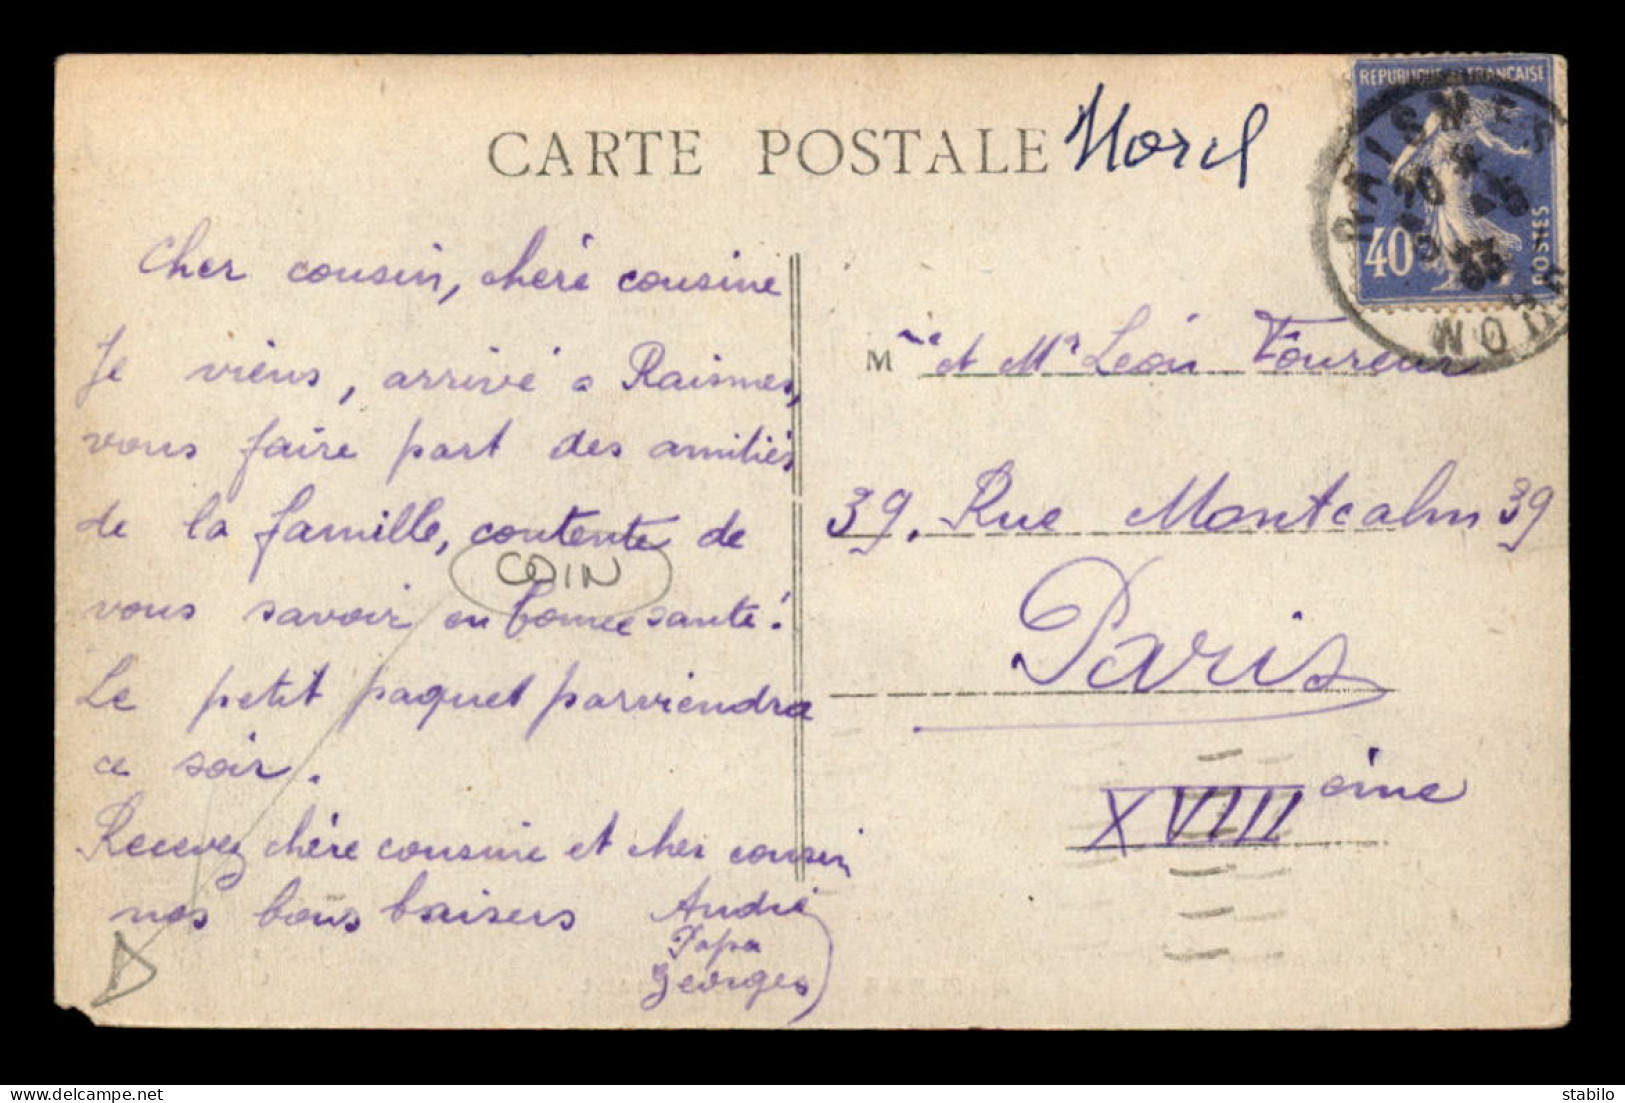 CARTE POSTALE
Nord
RÉPUBLIQUE FRANÇAISE
40
POSTES
RAISMES
NORD
Cher cousin, chére cousine
Je viens, arrivé a Raismes,
vous faire part des amitiés
de la famille, contente de
COIN
vous savoir en bonne santé!
Le petit paquet parviendra
ce soir.
Recevez chère cousine et cher cousin
nos bons baisers André
Papa
Georges
M me et Mr Léon Foureur
39, Rue Montcalm 39
Paris
XVIII ème
stabilo | delcampe.net